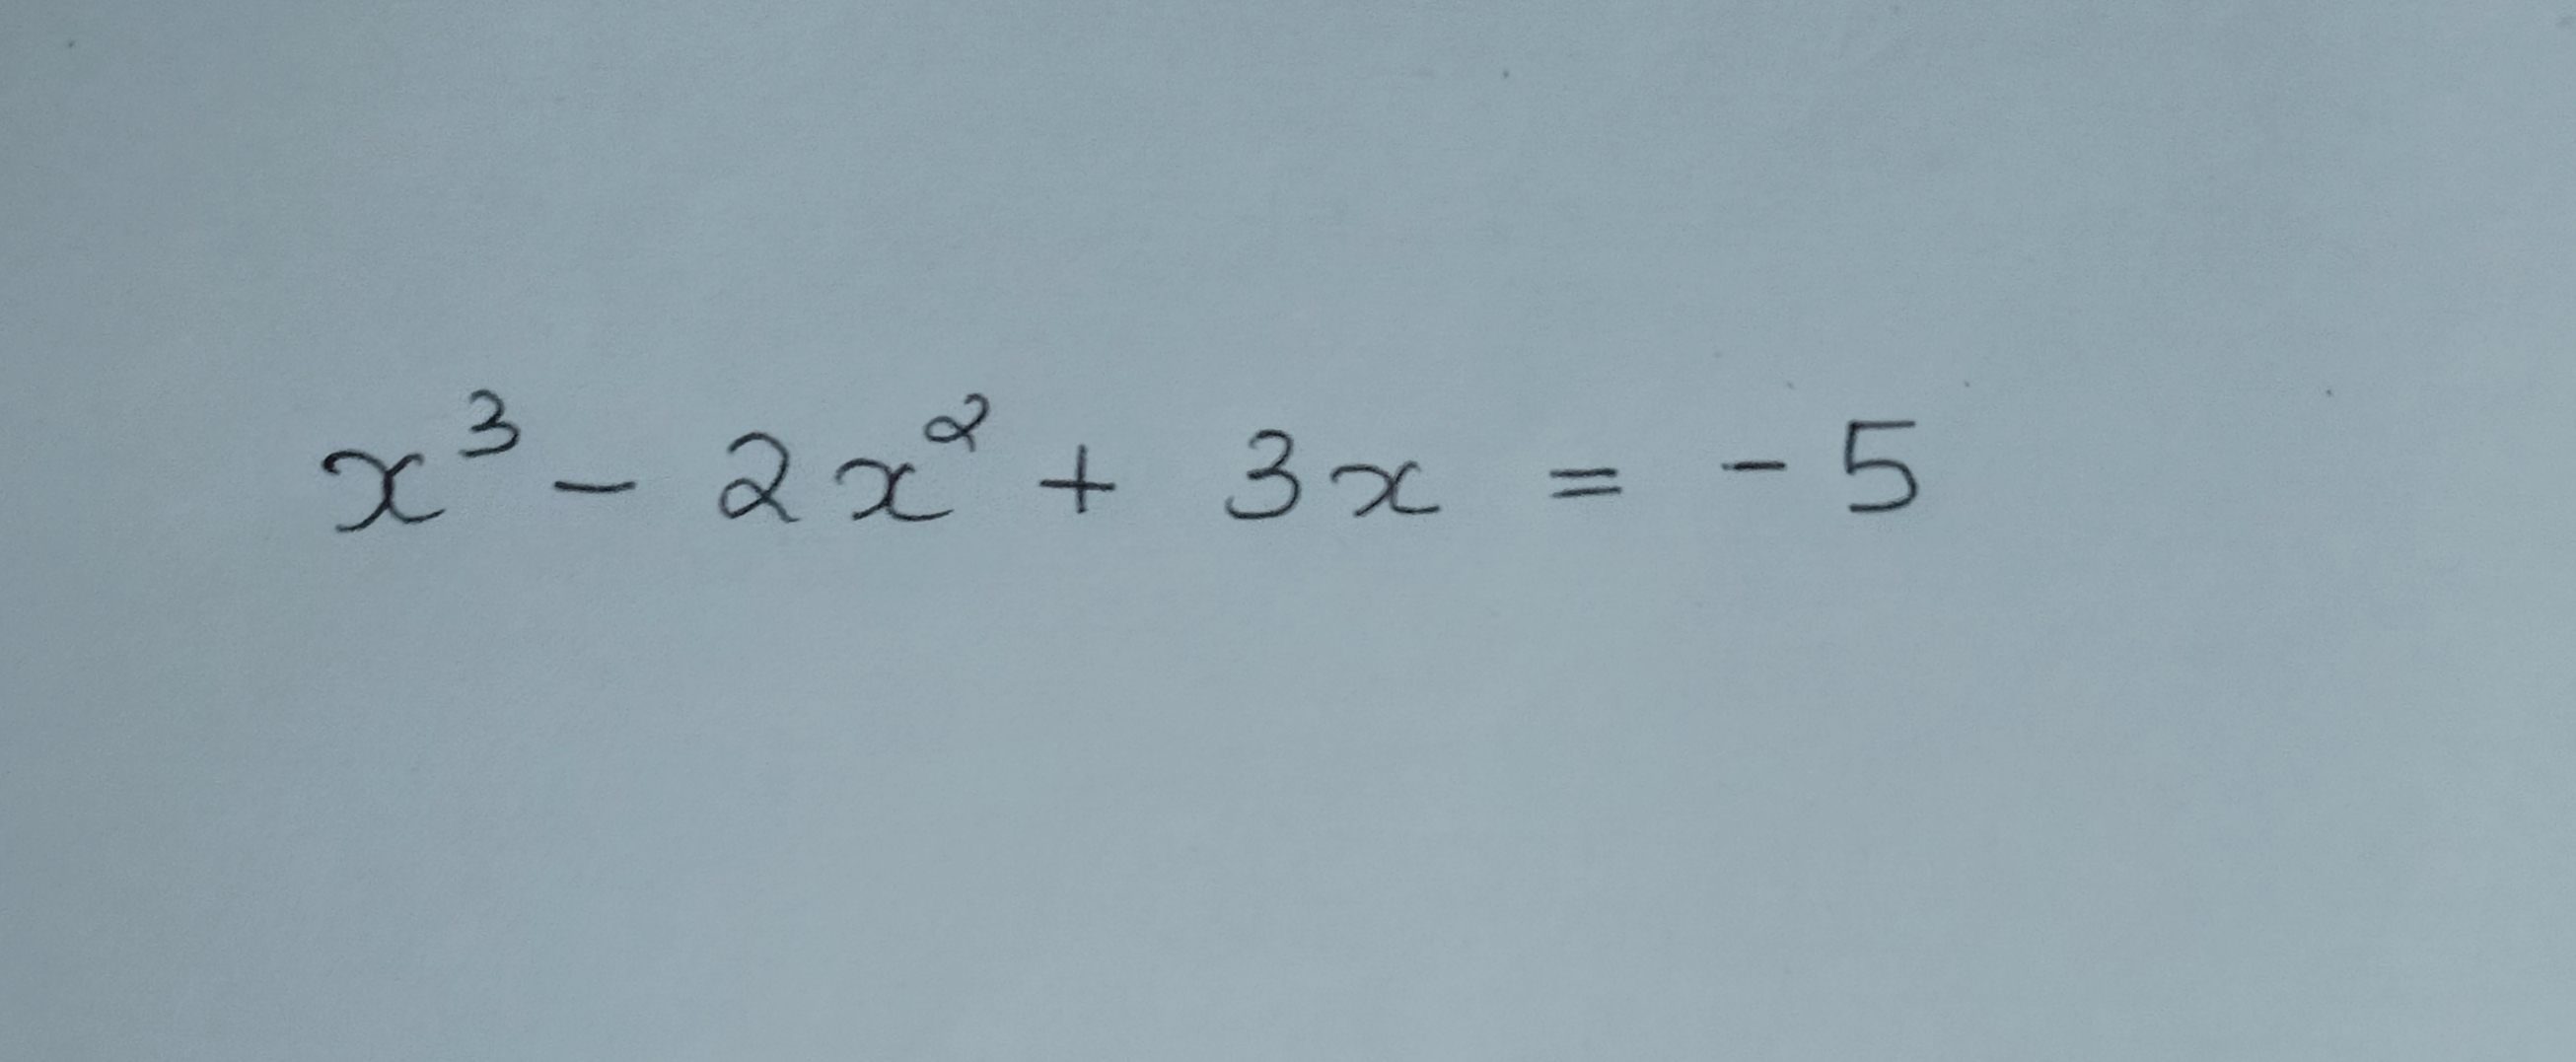 x³ - 2x² + 3x = -5